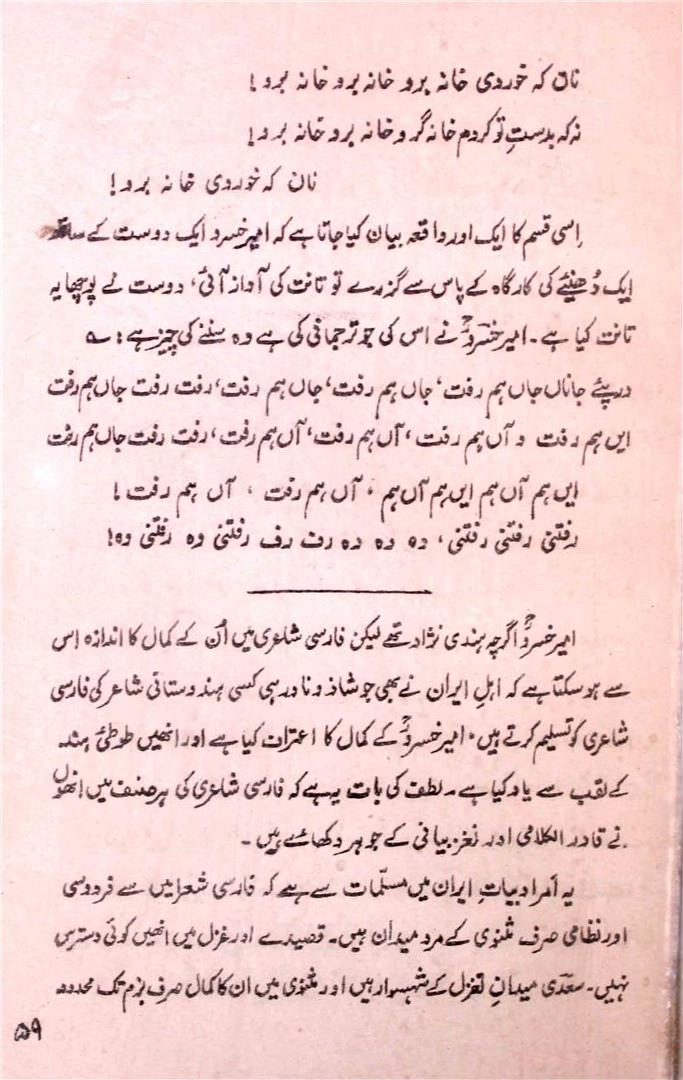 نان کہ خوردی خانہ برو خانہ برو خانہ برو!
نہ کہ بدستِ تو کردم خانہ گرو خانہ برو خانہ برو!
نان کہ خوردی خانہ برو!
اِسی قسم کا ایک اور واقعہ بیان کیا جاتا ہے کہ امیر خسرو ایک دوست کے ساتھ
ایک دُھنیے کی کارگاہ کے پاس سے گزرے تو تانت کی آواز آئی، دوست نے پوچھا یہ
تانت کیا ہے۔ امیر خسروؒ نے اس کی جو ترجمانی کی ہے وہ سننے کی چیز ہے: ؎
درپئے جاناں جاں ہم رفت، جاں ہم رفت، جاں ہم رفت، رفت رفت جاں ہم رفت
ایں ہم رفت و آں ہم رفت، آں ہم رفت، آں ہم رفت، رفت رفت جاں ہم رفت
ایں ہم آں ہم ایں ہم آں ہم، آں ہم رفت، آں ہم رفت!
رفتنی رفتنی رفتنی، دہ دہ دہ رف رف رفتنی دہ رفتنی دہ!
امیر خسروؒ اگرچہ ہندی نژاد تھے لیکن فارسی شاعری میں اُن کے کمال کا اندازہ اس
سے ہو سکتا ہے کہ اہلِ ایران نے بھی جو شاذ و نادر ہی کسی ہندوستانی شاعر کی فارسی
شاعری کو تسلیم کرتے ہیں۔ امیر خسروؒ کے کمال کا اعتراف کیا ہے اور انھیں طوطئ ہند
کے لقب سے یاد کیا ہے۔ لطف کی بات یہ ہے کہ فارسی شاعری کی ہر صنف میں انھوں
نے قادر الکلامی اور نغز بیانی کے جوہر دکھائے ہیں۔
یہ اَمر ادبیاتِ ایران میں مسلّمات سے ہے کہ فارسی شعرا میں سے فردوسی
اور نظامی صرف مثنوی کے مردِ میدان ہیں۔ قصیدے اور غزل میں انھیں کوئی دسترس
نہیں۔ سعدی میدانِ تغزل کے شہسوار ہیں اور مثنوی میں ان کا کمال صرف بزم تک محدود
۵۹